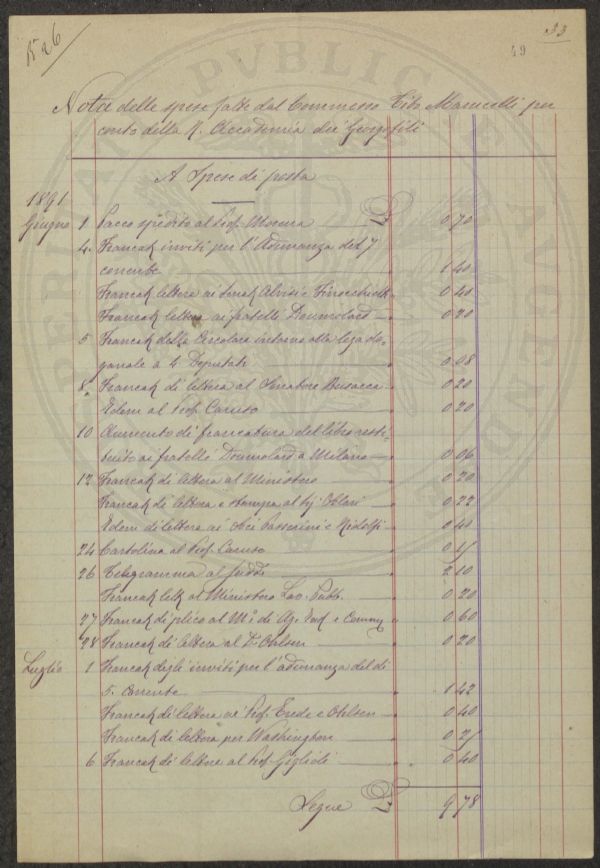 N° 26
33
49
Nota delle spese fatte dal Commesso Tito Marucelli per
conto della R. Accademia dei Georgofili
A Spese di posta
1891
Giugno 1. Pacco spedito al Prof. Mocura £ 0,70
4. Francat. inviti per l'Adunanza del 7
corrente 1,40
Francat. lettere ai Senat. Alvisi e Finocchietti 0,40
Francat. lettera ai fratelli Doumolard 0,20
5 Francat. della Circolare intorno alla lega do-
ganale a 4 Deputati 0,08
8. Francat. di lettera al Senatore Busacca 0,20
Idem al Prof. Caruso 0,20
10 Aumento di francatura del libro resti-
tuito ai fratelli Doumolard a Milano 0,06
12 Francat. di lettera al Ministero 0,20
Francat. di lettera e stampa al 0,22
Idem di lettere ai Soci Passerini e Ridolfi 0,40
24 Cartolina al Prof. Caruso
26 Telegramma al 2,10
Francat. lett. al Ministero Lav. Pubb. 0,20
27 Francat. di plico al M° di Ag. Ind. e Comm. 0,60
28 Francat. di lettera al D. Ohlsen 0,20
Luglio 1 Francat. degli inviti per l'adunanza del dì
5. Corrente 1,42
Francat. di lettera ai Prof. Erede e Ohlsen 0,40
Francat. di lettera per Washington
6 Francat. di lettere al Prof. Giglioli 0,40
Segue £ 9,78